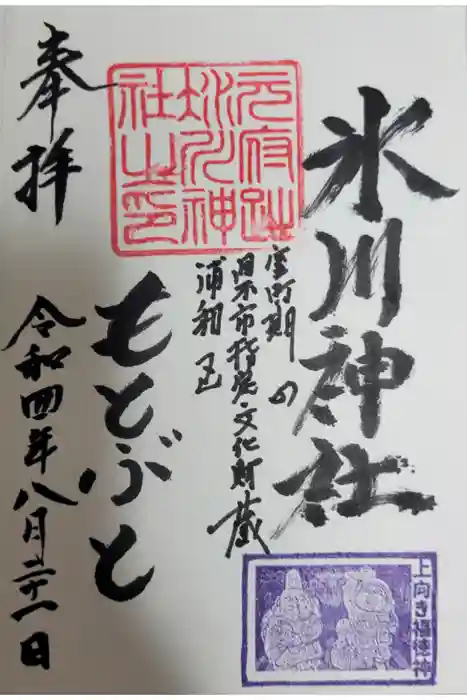 氷川神社
元府趾
氷川神
社之印
室町期の
市指定・文化財 蔵
浦和
もとぶと
奉拝
令和四年八月二十一日
上向き福徳神